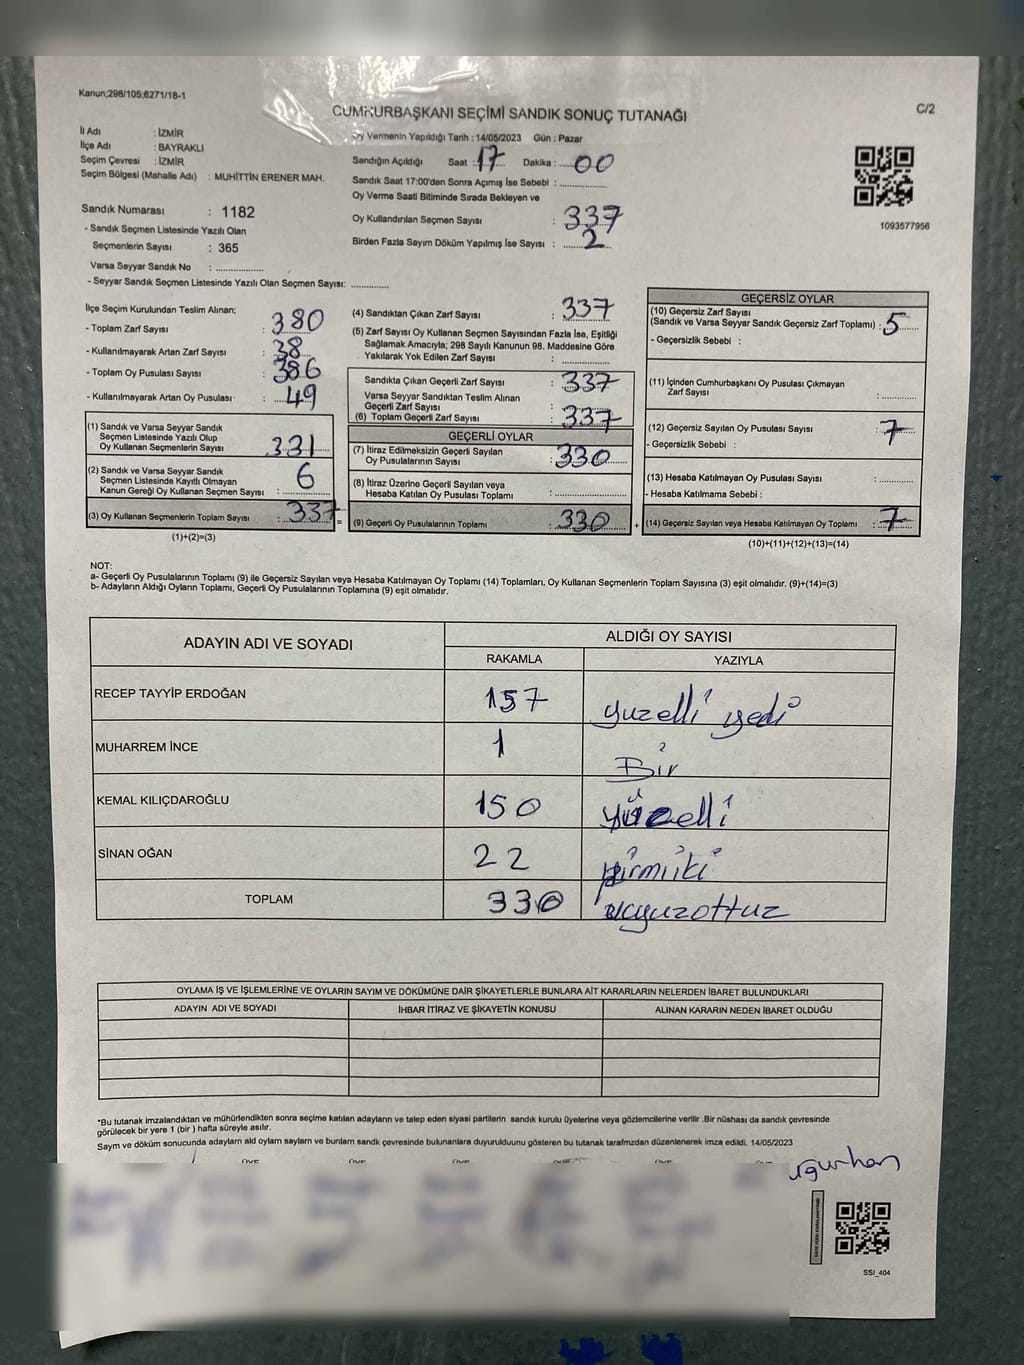 Kanun;298/105;6271/18-1
CUMHURBAŞKANI SEÇİMİ SANDIK SONUÇ TUTANAĞI
C/2
İl Adı : İZMİR
İlçe Adı : BAYRAKLI
Seçim Çevresi : İZMİR
Seçim Bölgesi (Mahalle Adı) : MUHİTTİN ERENER MAH.
Oy Vermenin Yapıldığı Tarih : 14/05/2023 Gün : Pazar
Sandığın Açıldığı Saat : 17 Dakika : 00
Sandık Saat 17:00'den Sonra Açımış İse Sebebi :
Oy Verme Saati Bitiminde Sırada Bekleyen ve
Oy Kullandırılan Seçmen Sayısı : 337
Birden Fazla Sayım Döküm Yapılmış İse Sayısı : 2
1093577956
Sandık Numarası : 1182
- Sandık Seçmen Listesinde Yazılı Olan
Seçmenlerin Sayısı : 365
Varsa Seyyar Sandık No :
- Seyyar Sandık Seçmen Listesinde Yazılı Olan Seçmen Sayısı:
İlçe Seçim Kurulundan Teslim Alınan;
- Toplam Zarf Sayısı : 380
- Kullanılmayarak Artan Zarf Sayısı : 38
- Toplam Oy Pusulası Sayısı : 386
- Kullanılmayarak Artan Oy Pusulası : 49
(1) Sandık ve Varsa Seyyar Sandık
Seçmen Listesinde Yazılı Olup
Oy Kullanan Seçmenlerin Sayısı : 331
(2) Sandık ve Varsa Seyyar Sandık
Seçmen Listesinde Kayıtlı Olmayan
Kanun Gereği Oy Kullanan Seçmen Sayısı : 6
(3) Oy Kullanan Seçmenlerin Toplam Sayısı : 337
(1)+(2)=(3)
(4) Sandıktan Çıkan Zarf Sayısı : 337
(5) Zarf Sayısı Oy Kullanan Seçmen Sayısından Fazla İse, Eşitliği
Sağlamak Amacıyla; 298 Sayılı Kanunun 98. Maddesine Göre
Yakılarak Yok Edilen Zarf Sayısı :
Sandıkta Çıkan Geçerli Zarf Sayısı : 337
Varsa Seyyar Sandıktan Teslim Alınan
Geçerli Zarf Sayısı :
(6) Toplam Geçerli Zarf Sayısı : 337
GEÇERLİ OYLAR
(7) İtiraz Edilmeksizin Geçerli Sayılan
Oy Pusulalarının Sayısı : 330
(8) İtiraz Üzerine Geçerli Sayılan veya
Hesaba Katılan Oy Pusulası Toplamı :
= (9) Geçerli Oy Pusulalarının Toplamı : 330
GEÇERSİZ OYLAR
(10) Geçersiz Zarf Sayısı
(Sandık ve Varsa Seyyar Sandık Geçersiz Zarf Toplamı) : 5
- Geçersizlik Sebebi :
(11) İçinden Cumhurbaşkanı Oy Pusulası Çıkmayan
Zarf Sayısı :
(12) Geçersiz Sayılan Oy Pusulası Sayısı : 7
- Geçersizlik Sebebi :
(13) Hesaba Katılmayan Oy Pusulası Sayısı :
- Hesaba Katılmama Sebebi :
+ (14) Geçersiz Sayılan veya Hesaba Katılmayan Oy Toplamı : 7
(10)+(11)+(12)+(13)=(14)
NOT:
a- Geçerli Oy Pusulalarının Toplamı (9) ile Geçersiz Sayılan veya Hesaba Katılmayan Oy Toplamı (14) Toplamları, Oy Kullanan Seçmenlerin Toplam Sayısına (3) eşit olmalıdır. (9)+(14)=(3)
b- Adayların Aldığı Oyların Toplamı, Geçerli Oy Pusulalarının Toplamına (9) eşit olmalıdır.
ADAYIN ADI VE SOYADI ALDIĞI OY SAYISI
RAKAMLA YAZIYLA
RECEP TAYYİP ERDOĞAN 157 yuzelli yedi
MUHARREM İNCE 1 Bir
KEMAL KILIÇDAROĞLU 150 yüzelli
SİNAN OĞAN 22 yirmiiki
TOPLAM 330 ucyuzottuz
OYLAMA İŞ VE İŞLEMLERİNE VE OYLARIN SAYIM VE DÖKÜMÜNE DAİR ŞİKAYETLERLE BUNLARA AİT KARARLARIN NELERDEN İBARET BULUNDUKLARI
ADAYIN ADI VE SOYADI İHBAR İTİRAZ VE ŞİKAYETİN KONUSU ALINAN KARARIN NEDEN İBARET OLDUĞU
*Bu tutanak imzalandıktan ve mühürlendikten sonra seçime katılan adayların ve talep eden siyasi partilerin sandık kurulu üyelerine veya gözlemcilerine verilir .Bir nüshası da sandık çevresinde
görülecek bir yere 1 (bir ) hafta süreyle asılır.
Sayım ve döküm sonucunda adayların ald oyların sayların ve bunların sandık çevresinde bulunanlara duyurulduunu gösteren bu tutanak tarafımzdan düzenlenerek imza edildi. 14/05/2023
ugurhan
SSI_404